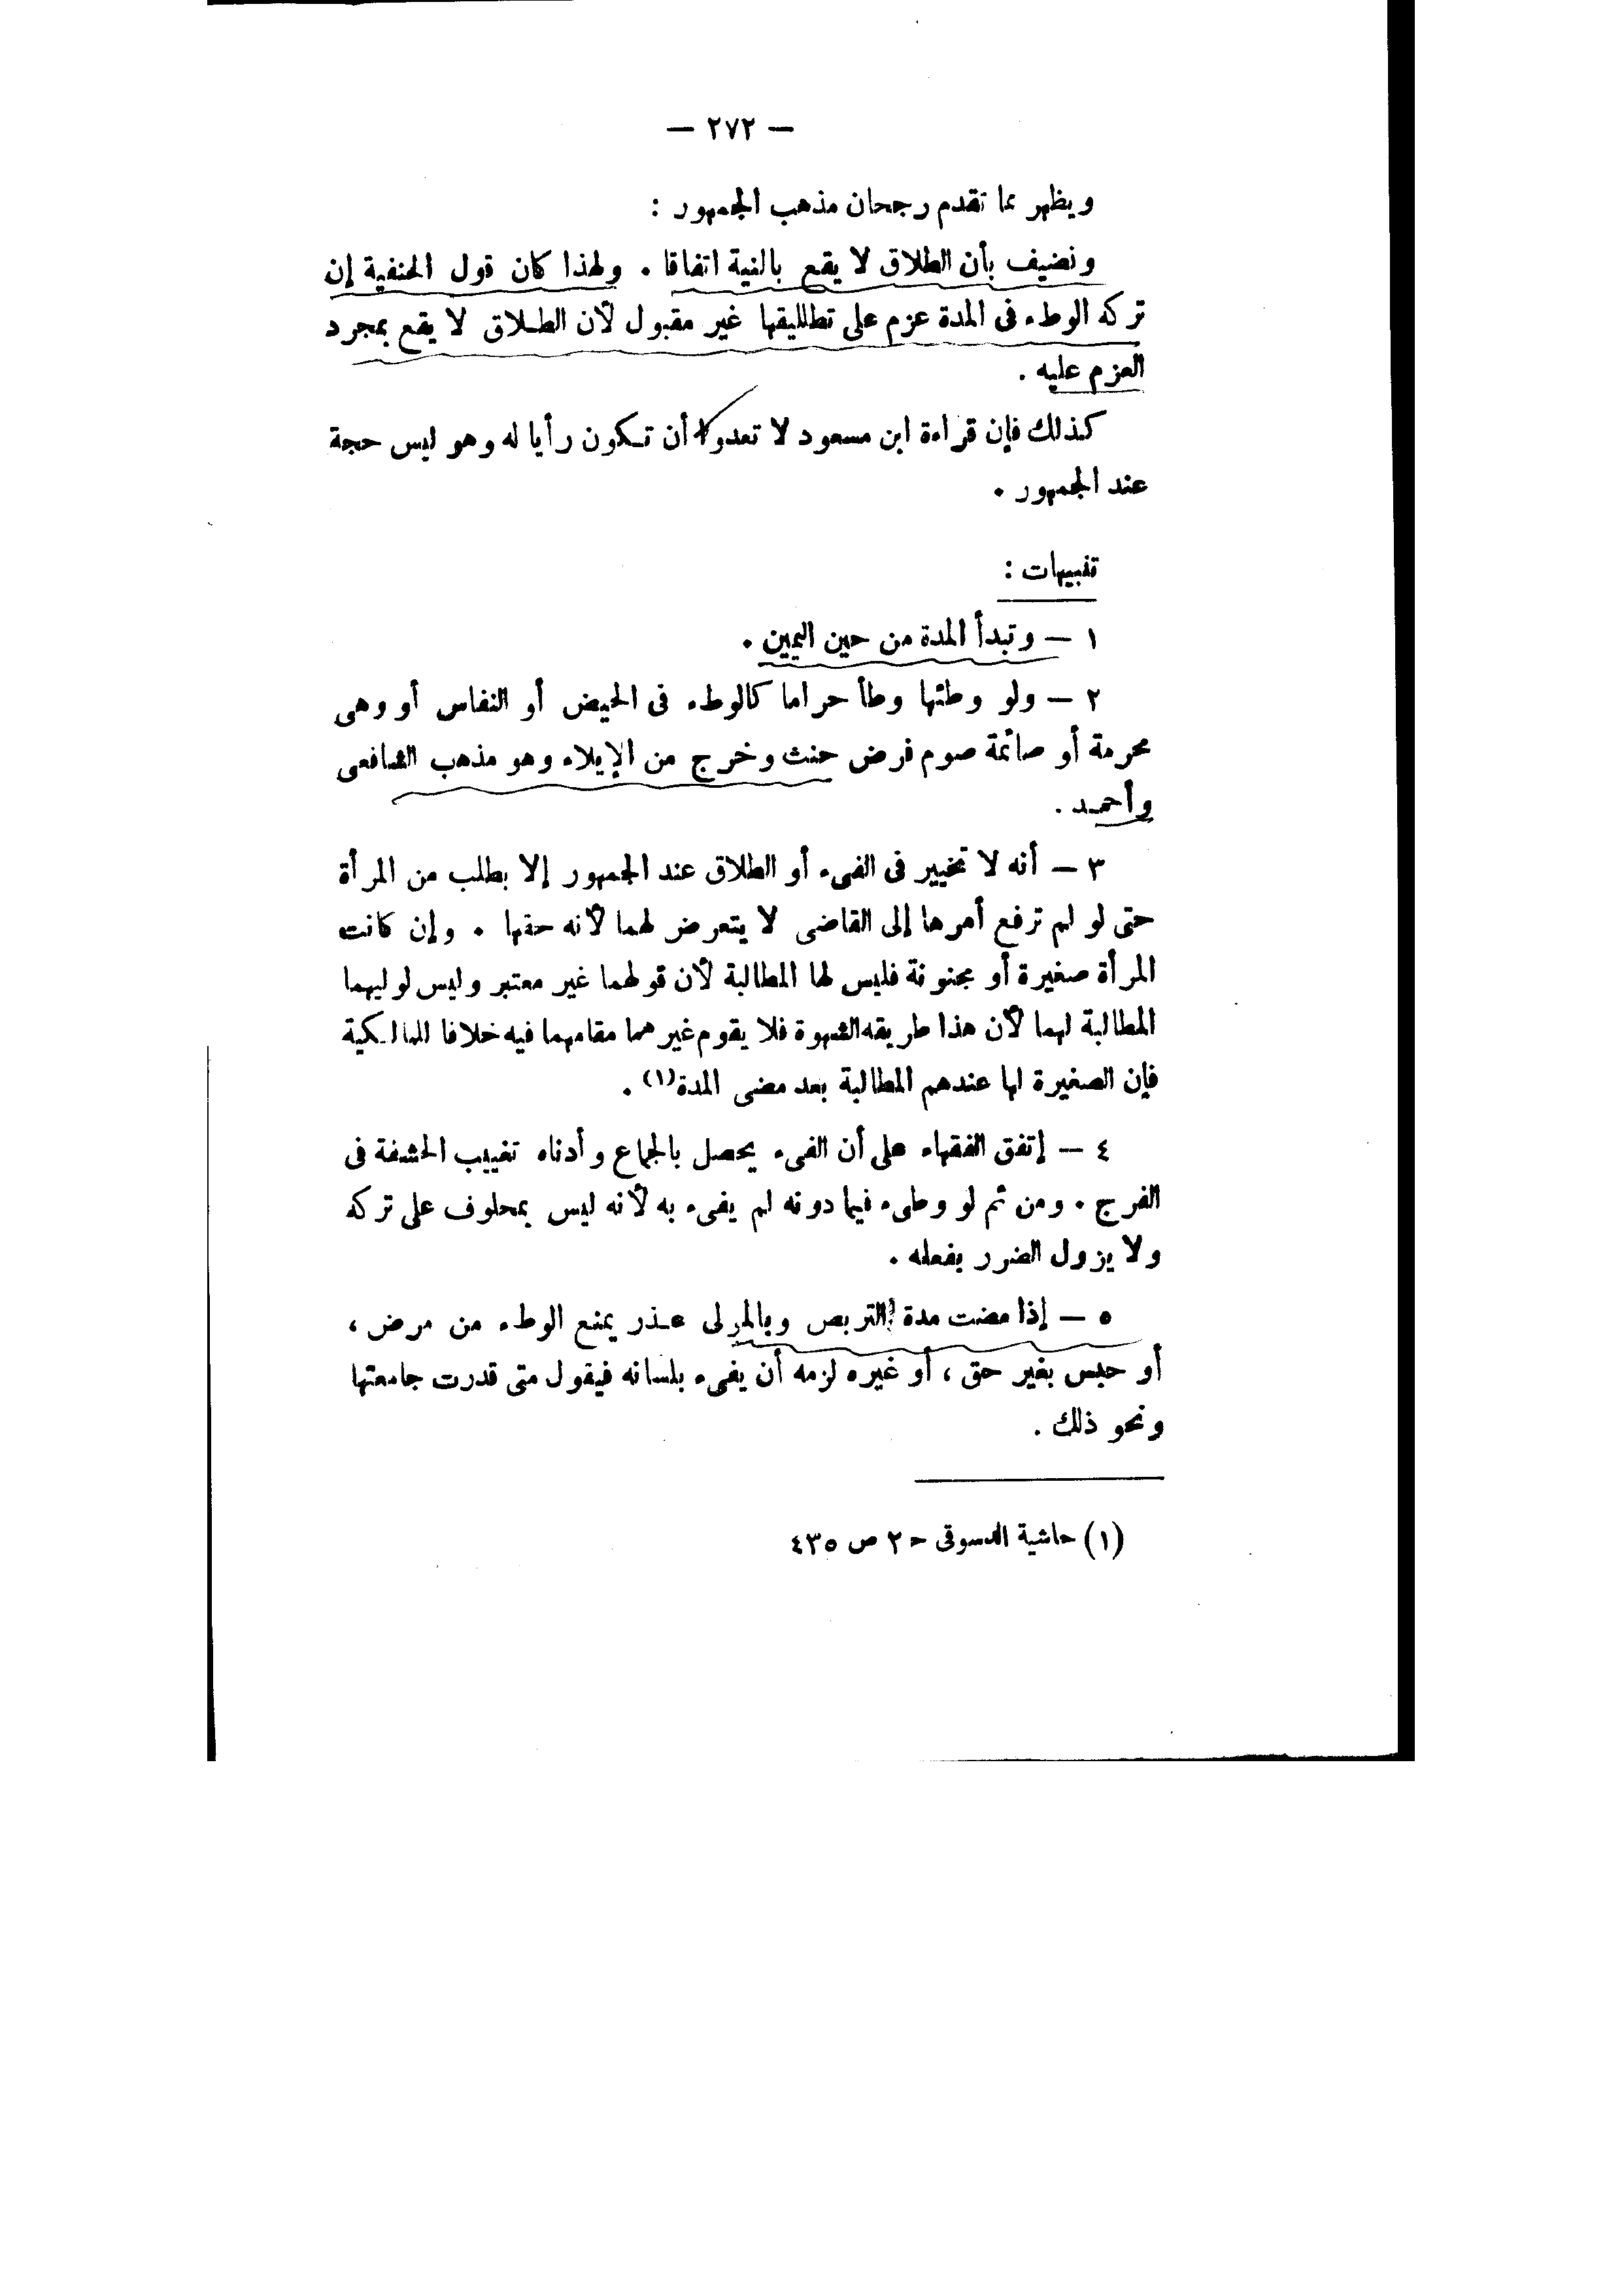 — ٢٧٢ —
ويظهر مما تقدم رجحان مذهب الجمهور :
ونضيف بأن الطلاق لا يقع بالنية اتفاقا . ولهذا كان قول الحنفية إن
تركه الوطء فى المدة عزم على تطلليقها غير مقبول لأن الطلاق لا يقع بمجرد
العزم عليه .
كذلك فإن قراءة ابن مسعود لا تعدوا أن تكون رأيا له وهو ليس حجة
عند الجمهور .
تنبيهات :
١ — وتبدأ المدة من حين اليمين .
٢ — ولو وطئها وطأ حراما كالوطء فى الحيض أو النفاس أو وهى
محرمة أو صائمة صوم فرض حنث وخرج من الإيلاء وهو مذهب الشافعى
وأحمد .
٣ — أنه لا تخيير فى الفىء أو الطلاق عند الجمهور إلا بطلب من المرأة
حتى لو لم ترفع أمرها إلى القاضى لا يتعرض لهما لأنه حقها . وإن كانت
المرأة صغيرة أو مجنونة فليس لها المطالبة لأن قولهما غير معتبر وليس لوليهما
المطالبة لهما لأن هذا طريقه الشهوة فلا يقوم غيرهما مقامهما فيه خلافا للمالكية
فإن الصغيرة لها عندهم المطالبة بعد مضى المدة(١) .
٤ — إتفق الفقهاء على أن الفىء يحصل بالجماع وأدناه تغييب الحشفة فى
الفرج . ومن ثم لو وطىء فيما دونه لم يفىء به لأنه ليس بمحلوف على تركه
ولا يزول الضرر بفعله .
٥ — إذا مضت مدة التربص وبالمولى عذر يمنع الوطء من مرض ،
أو حبس بغير حق ، أو غيره لزمه أن يفىء بلسانه فيقول متى قدرت جامعتها
ونحو ذلك .
(١) حاشية الدسوقى ح ٢ ص ٤٣٥